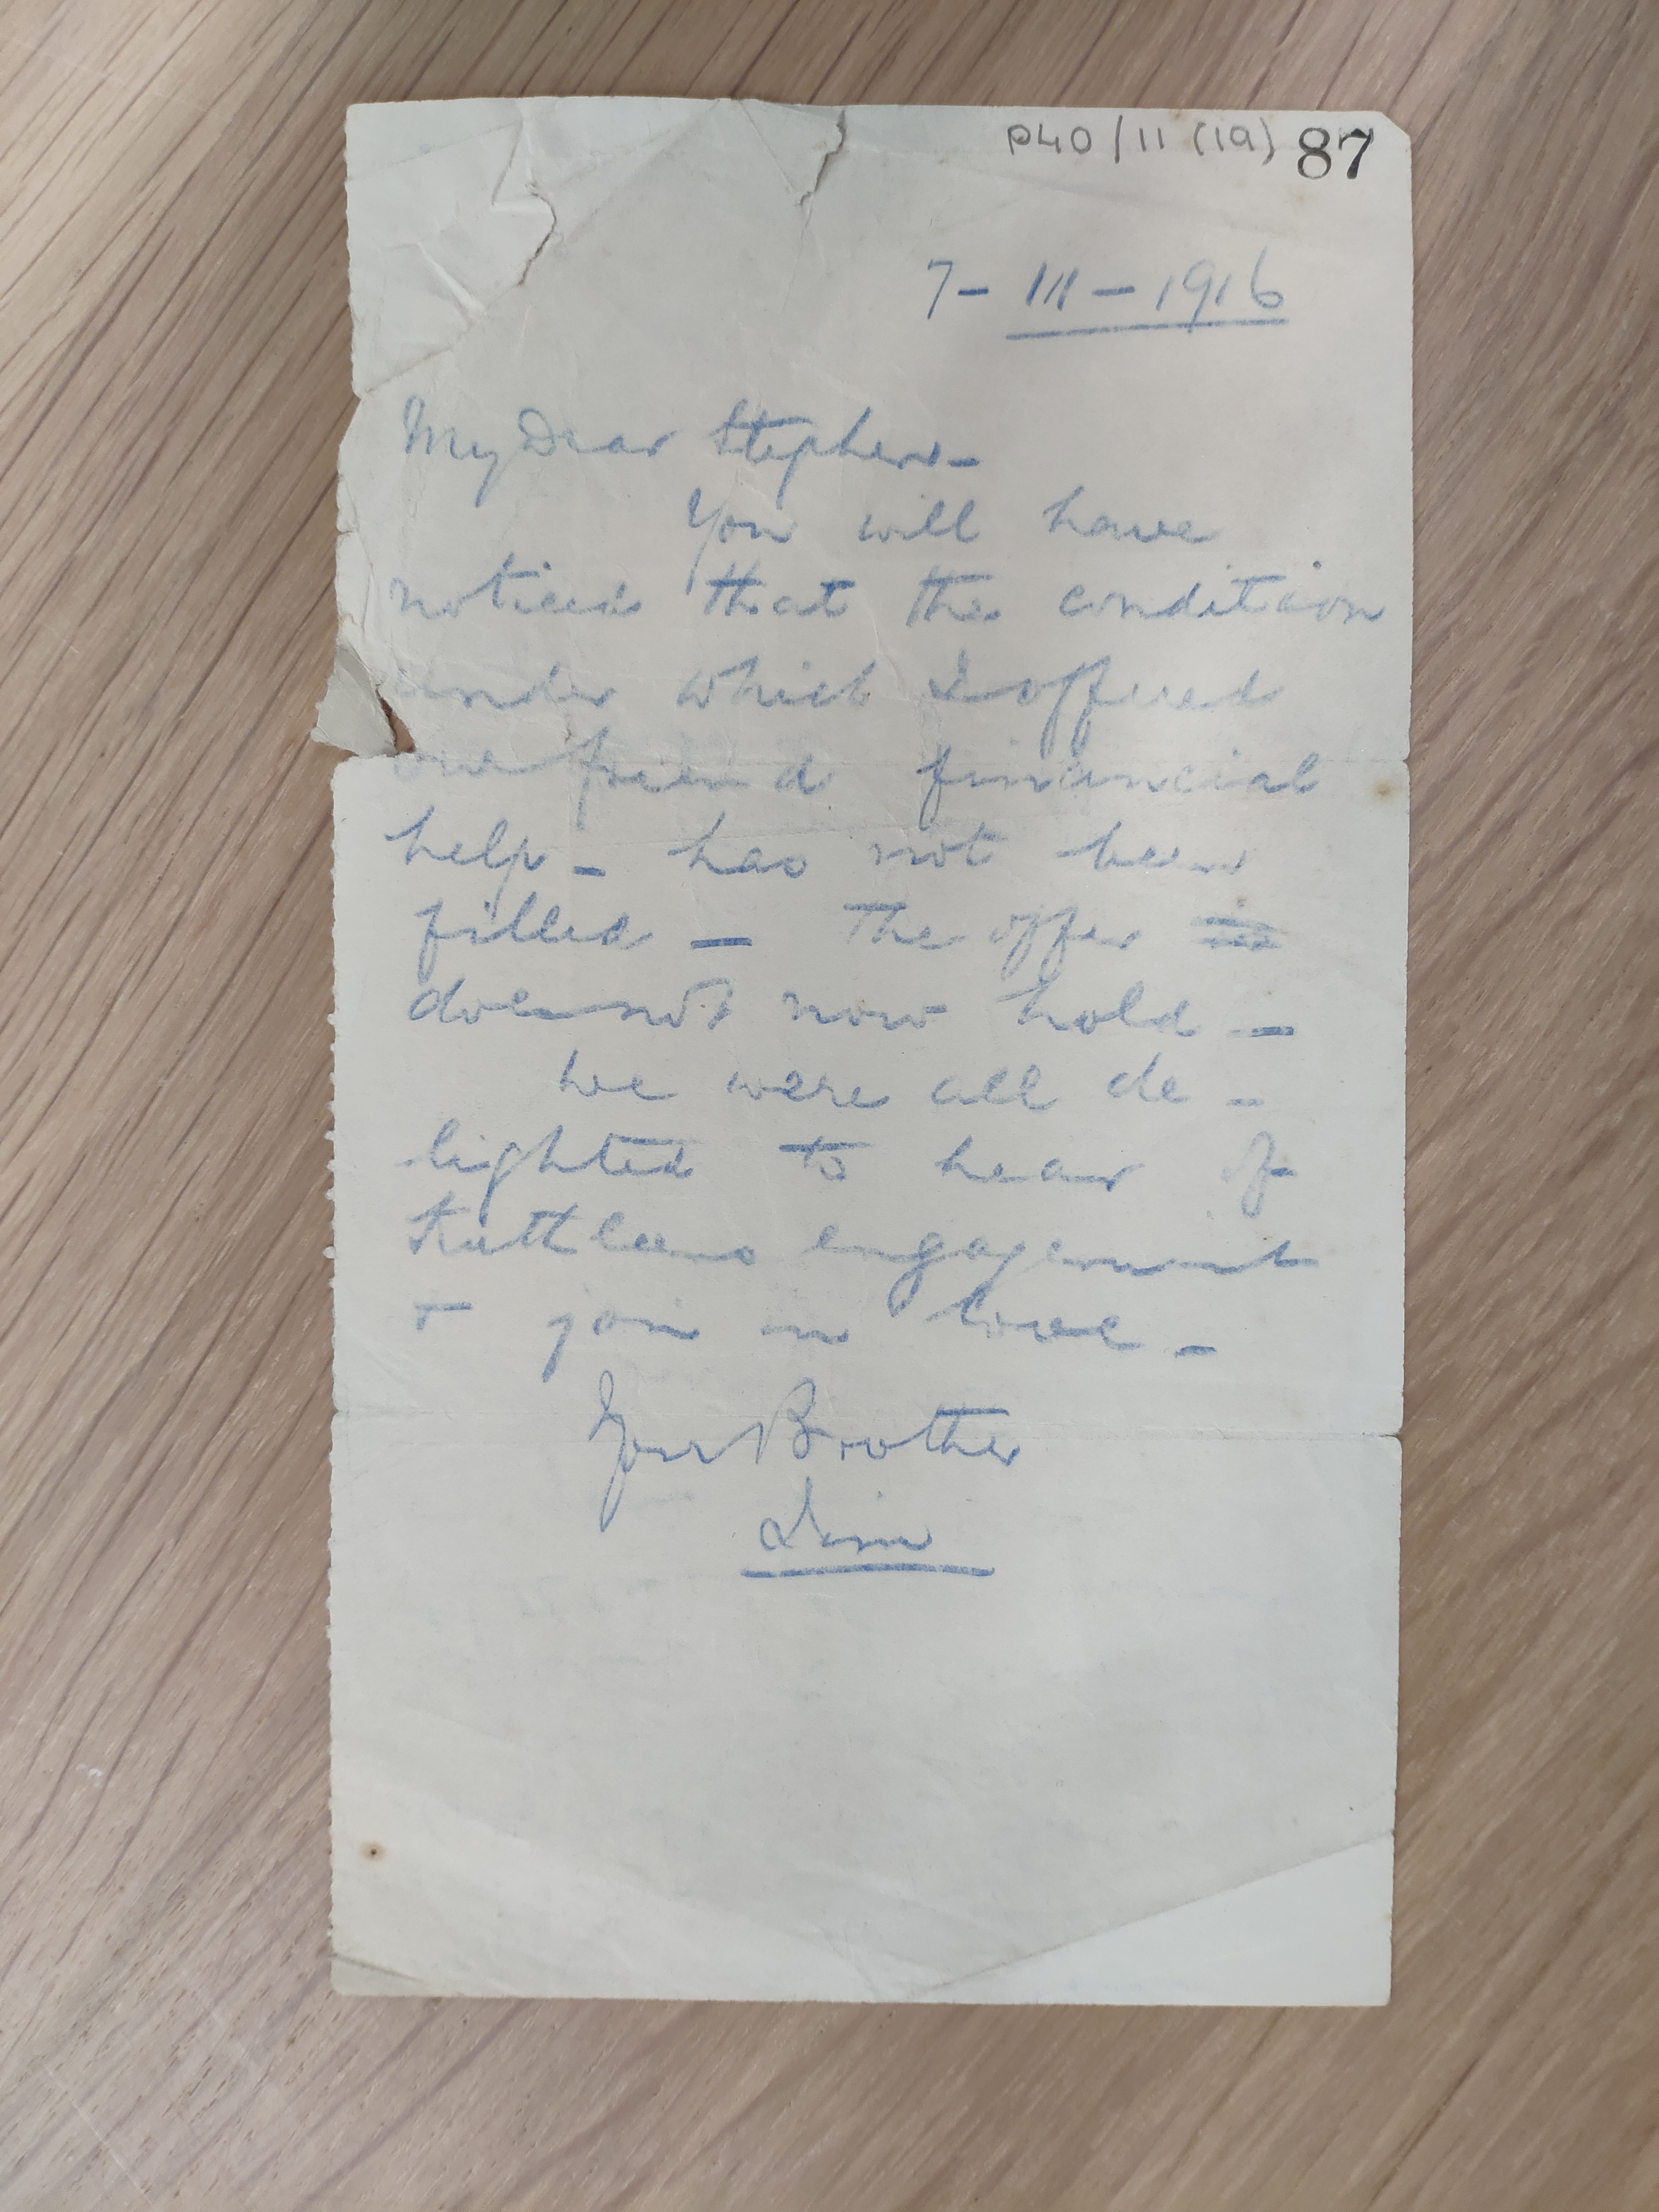 P40/11 (19) 87
7- III - 1916
My Dear Stephen -
You will have
noticed that the condition
under which I offered
our friend financial
help - has not been
filled - The offer
does not now hold -
We were all de -
lighted to hear of
Kathleens engagement
& join in love -
Your Brother
Jim